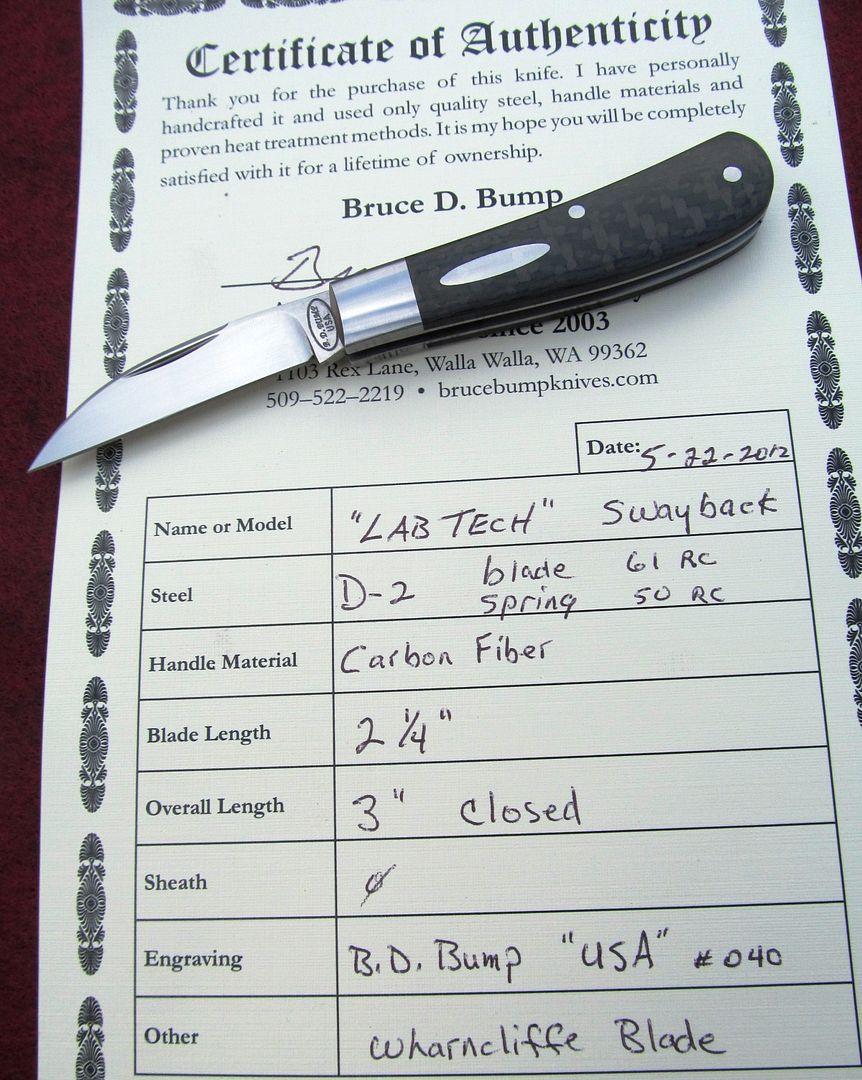 Certificate of Authenticity
Thank you for the purchase of this knife. I have personally
handcrafted it and used only quality steel, handle materials and
proven heat treatment methods. It is my hope you will be completely
satisfied with it for a lifetime of ownership.
Bruce D. Bump
B.D. BUMP
USA
2003
1103 Rex Lane, Walla Walla, WA 99362
509–522–2219 • brucebumpknives.com
Date: 5-22-2012
Name or Model "LAB TECH" Swayback
Steel D-2 blade 61 RC
spring 50 RC
Handle Material Carbon Fiber
Blade Length 2 1/4"
Overall Length 3" Closed
Sheath ø
Engraving B.D. Bump "USA" # 040
Other Wharncliffe Blade